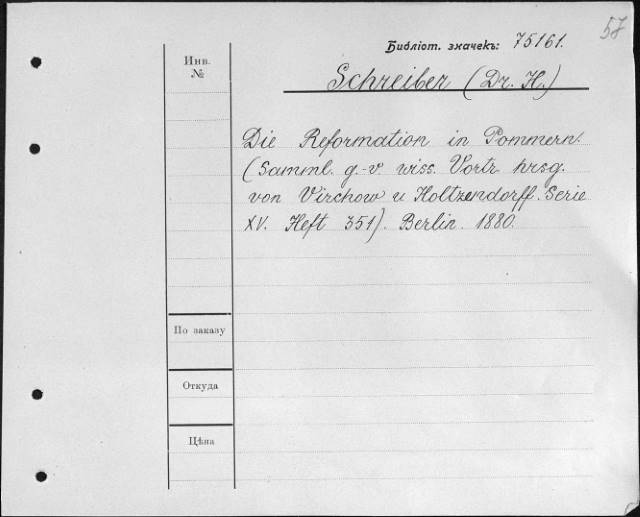 57
Библіот. значекъ: 75161.
Инв.
№
Schreiber (Dr. H.)
Die Reformation in Pommern.
(Samml. g.-v. wiss. Vortr. hrsg.
von Virchow u Holtzendorff. Serie
XV. Heft 351). Berlin. 1880.
По заказу
Откуда
Цѣна